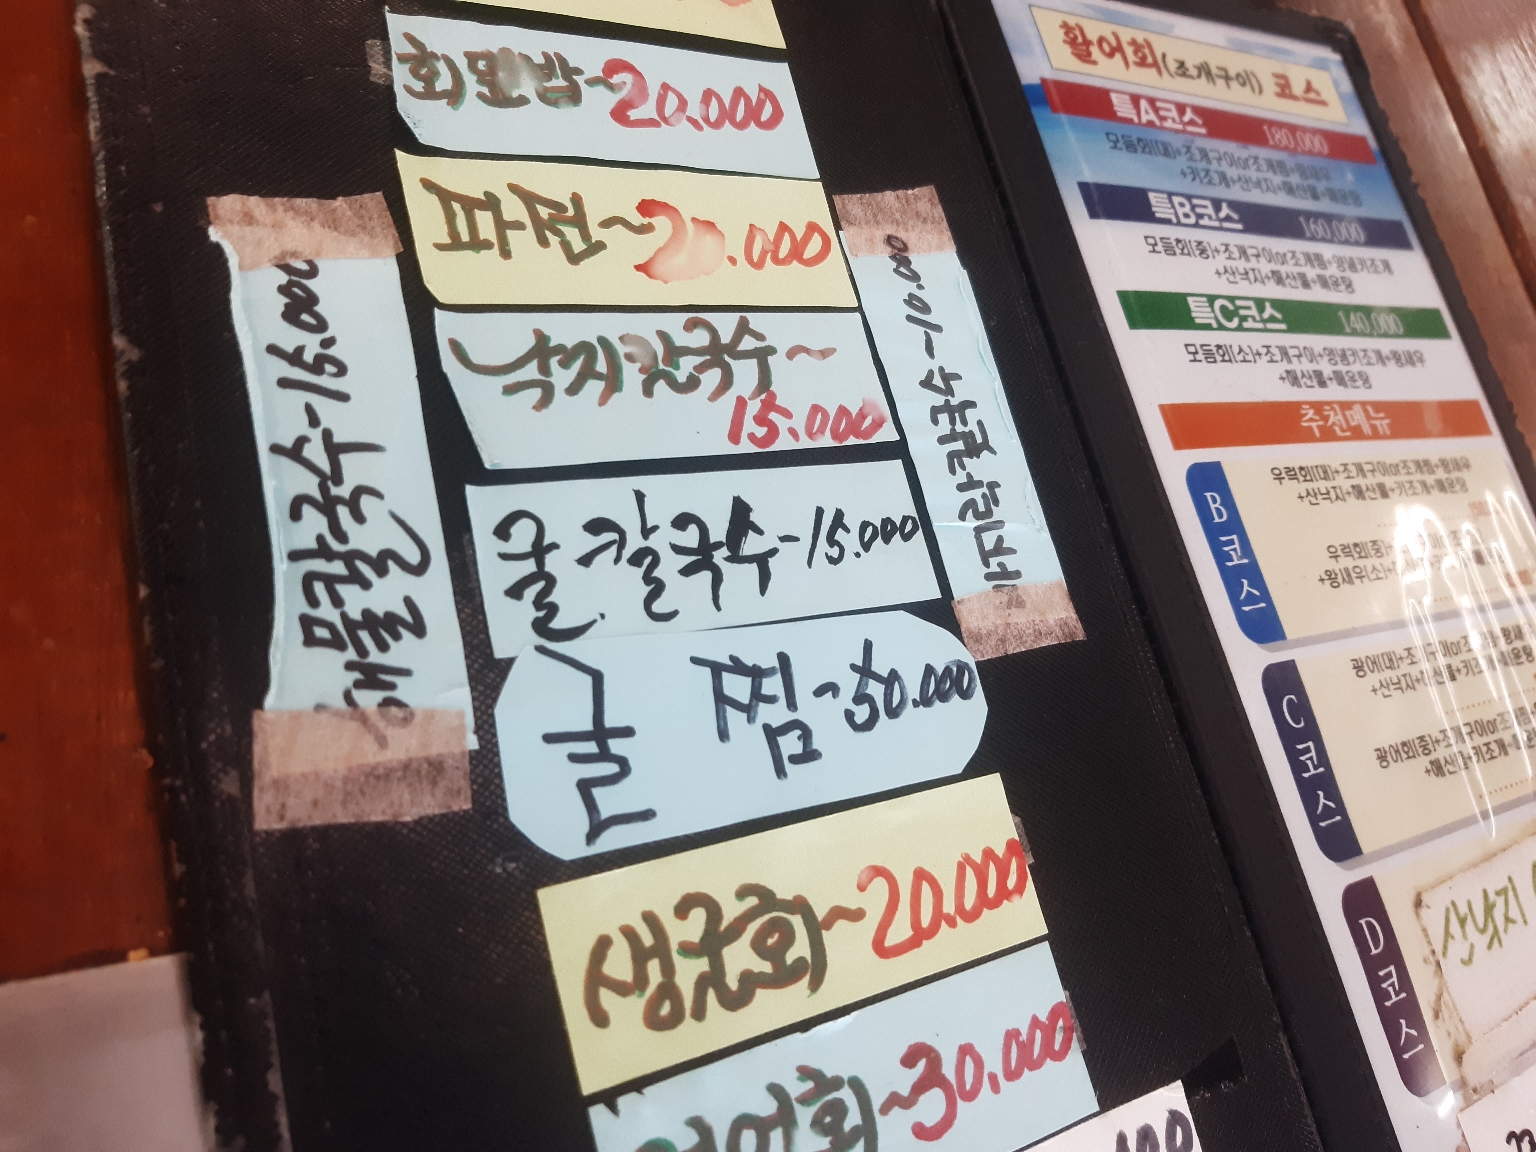 회덮밥~20.000
파전~20.000
낙지칼국수~
15.000
굴칼국수-15.000
굴찜-50.000
생굴회~20.000
회~30.000
해물칼국수-15.000
바지락칼국수-10.000
활어회(조개구이) 코스
특A코스 180,000
모듬회(대)+조개구이or조개찜+왕새우
+키조개+산낙지+해산물+매운탕
특B코스 160,000
모듬회(중)+조개구이or조개찜+양념키조개
+산낙지+해산물+매운탕
특C코스 140,000
모듬회(소)+조개구이+양념키조개+왕새우
+해산물+매운탕
추천메뉴
B코스
우럭회(대)+조개구이or조개찜+왕새우
+산낙지+해산물+키조개+매운탕
우럭회(중)
+왕새우(소)
C코스
광어(대)+조개구이or조개
+산낙지+해산물+키조개+매운탕
광어회(중)+조개구이or조개
+해산물+키조개
D코스
산낙지